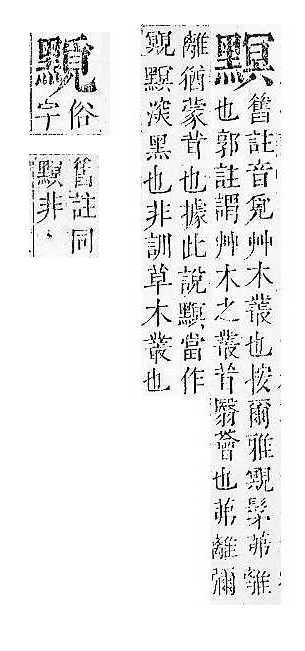 舊註音覓艸木叢也按爾雅覭髳茀離
也郭註謂艸木之叢茸翳薈也茀離彌
離猶蒙茸也據此說當作
覭深黑也非訓草木叢也
俗
字
舊註同
非